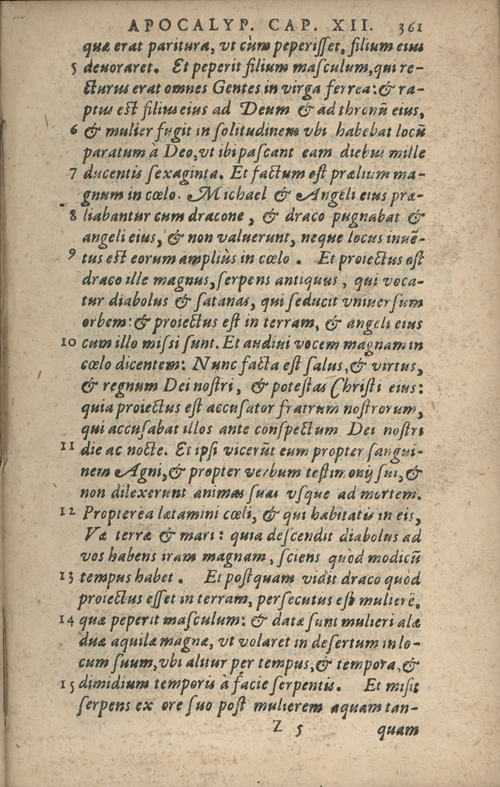 APOCALYP. CAP. XII. 361
quæ erat paritura, vt cùm peperiſſet, filium eius
5 deuoraret. Et peperit filium maſculum, qui re-
cturus erat omnes Gentes in virga ferrea: & ra-
ptus eſt filius eius ad Deum & ad thronũ eius,
6 & mulier fugit in ſolitudinem vbi habebat locũ
paratum à Deo, vt ibi paſcant eam diebus mille
7 ducentis ſexaginta. Et factum eſt prælium ma-
gnum in cœlo. Michael & Angeli eius præ-
8 liabantur cum dracone, & draco pugnabat &
angeli eius, & non valuerunt, neque locus inuẽ-
9 tus eſt eorum ampliùs in cœlo. Et proiectus eſt
draco ille magnus, ſerpens antiquus, qui voca-
tur diabolus & ſatanas, qui ſeducit vniuerſum
orbem: & proiectus eſt in terram, & angeli eius
10 cum illo miſſi ſunt. Et audiui vocem magnam in
cœlo dicentem: Nunc facta eſt ſalus, & virtus,
& regnum Dei noſtri, & poteſtas Chriſti eius:
quia proiectus eſt accuſator fratrum noſtrorum,
qui accuſabat illos ante conſpectum Dei noſtri
11 die ac nocte. Et ipſi vicerũt eum propter ſangui-
nem Agni, & propter verbum teſtimonij ſui, &
non dilexerunt animas ſuas vſque ad mortem.
12 Propterea lætamini cœli, & qui habitatis in eis,
Væ terræ & mari: quia deſcendit diabolus ad
vos habens iram magnam, ſciens quod modicũ
13 tempus habet. Et poſtquam vidit draco quòd
proiectus eſſet in terram, perſecutus eſt mulierẽ,
14 quæ peperit maſculum: & datæ ſunt mulieri alæ
duæ aquilæ magnæ, vt volaret in deſertum in lo-
cum ſuum, vbi alitur per tempus, & tempora, &
15 dimidium temporis à facie ſerpentis. Et miſit
ſerpens ex ore ſuo poſt mulierem aquam tan-
Z 5 quam